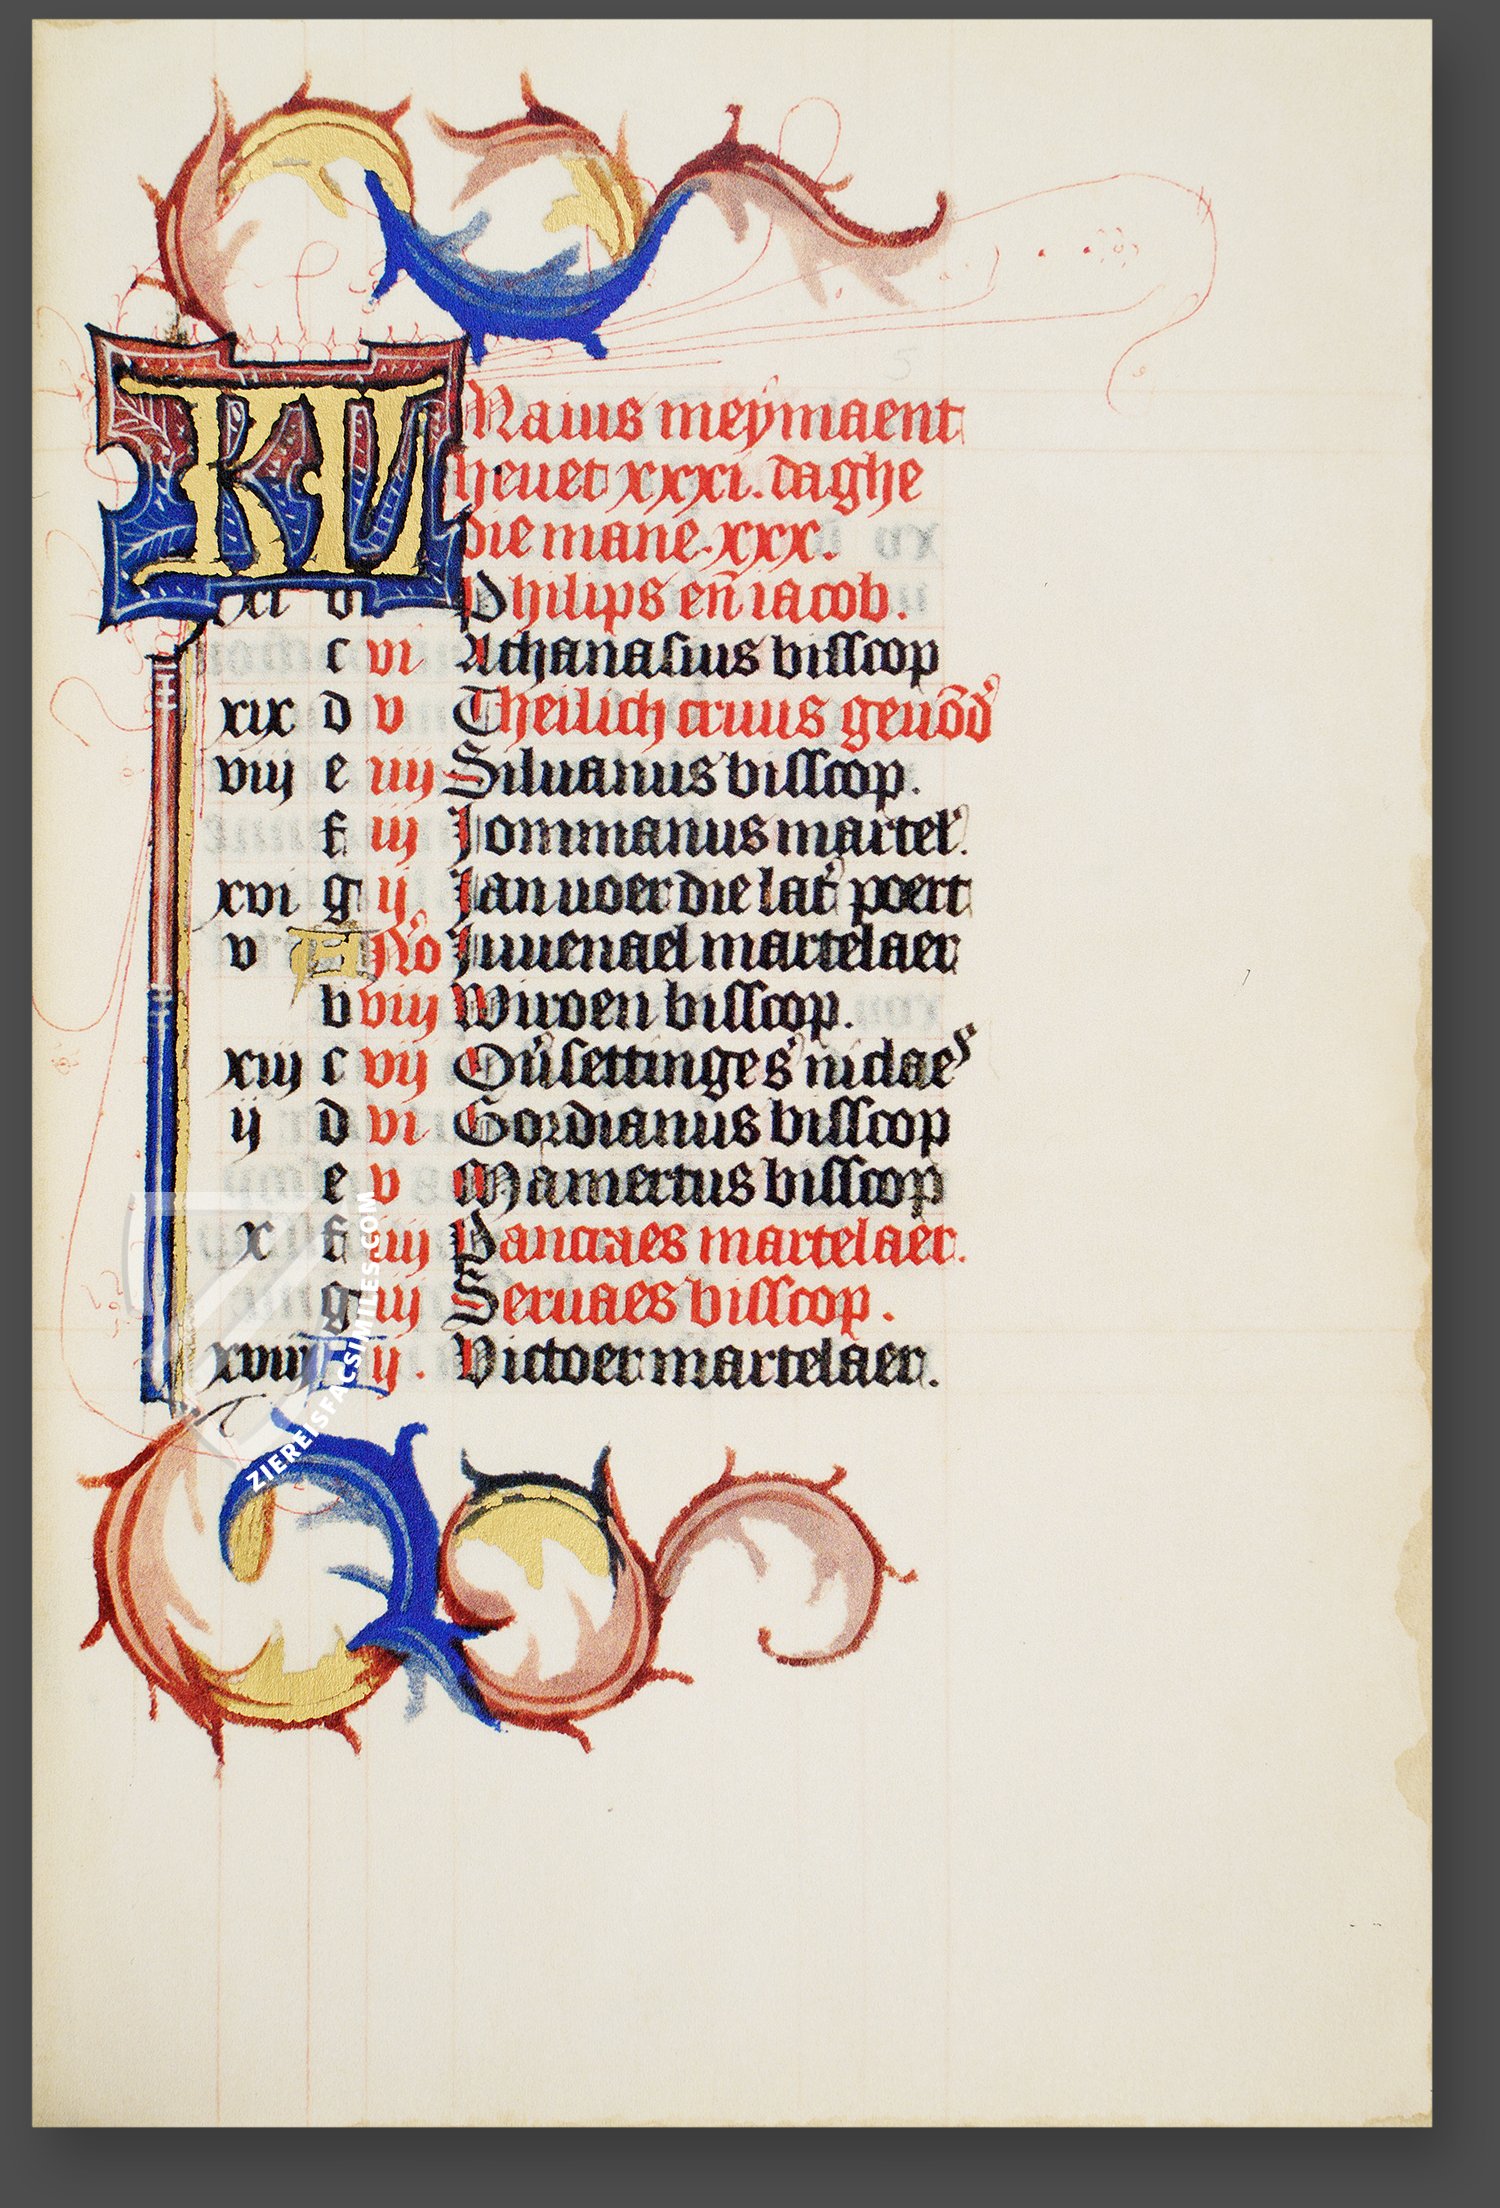 KL Maius meymaent
heuet xxxi. daghe
die mane. xxx.
xi b Philips en̄ iacob.
c vi Athanasius bisscop
xix d v Theilich cruus geuōd
viij e iiij Siluanus bisscop.
f iij Jommanus martel'.
xvi g ij Jan voer die lat' poert
v A No Juuenael martelaer
b viij Wiroen bisscop.
xiij c vij settinge s' niclae s
ij d vi Gordianus bisscop
e v Mamertus bisscop
x f iiij Pancraes martelaer.
g iij Seruaes bisscop.
xviij ij. Victoer martelaer.
ZIEREISFACSIMILES.COM